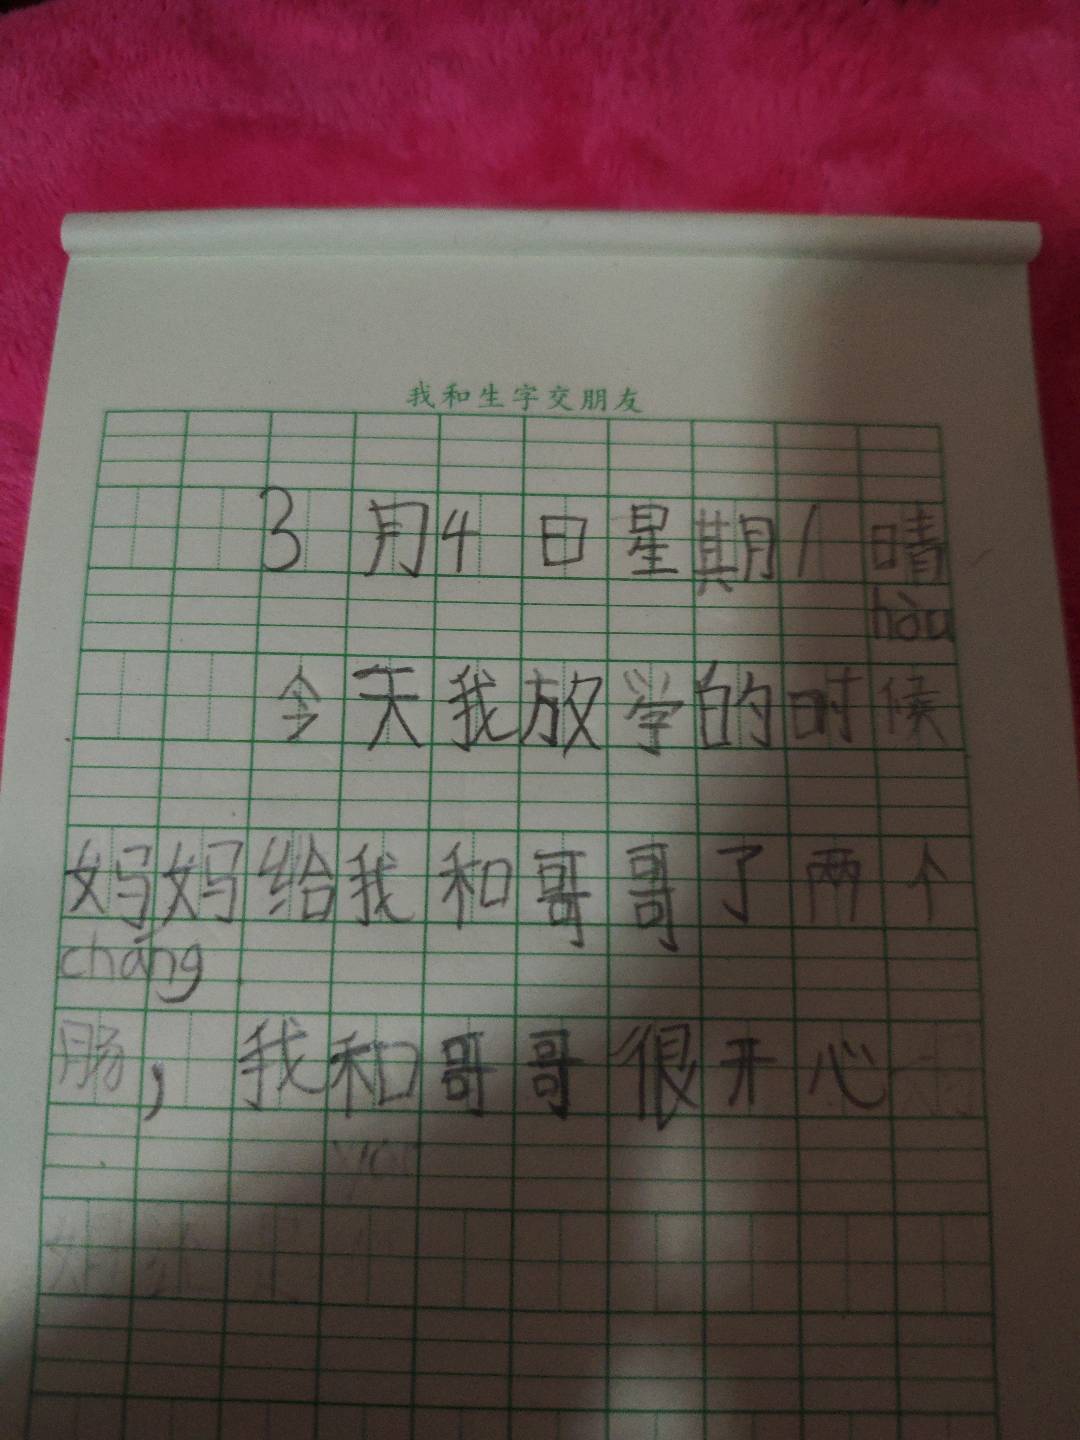 我和生字交朋友
3月4日星期1晴
hòu
今天我放学的时候
妈妈给我和哥哥了两个
cháng
肠，我和哥哥很开心